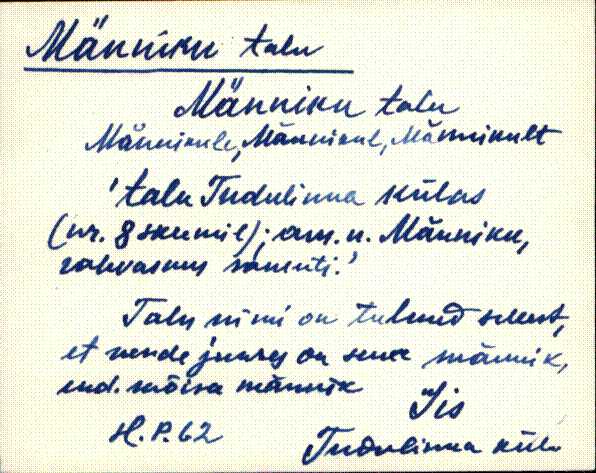 Männiku talu
Männiku talu
Männikule, Männikul, Männikult
'talu Tudulinna külas
(nr. 8 skeemil); am. n. Männiku,
rahvasuus samuti.'
Talu nimi on tulnud sellest,
et nende juures on suur männik,
end. mõisa männik
Iis
H. P. 62
Tudulinna küla